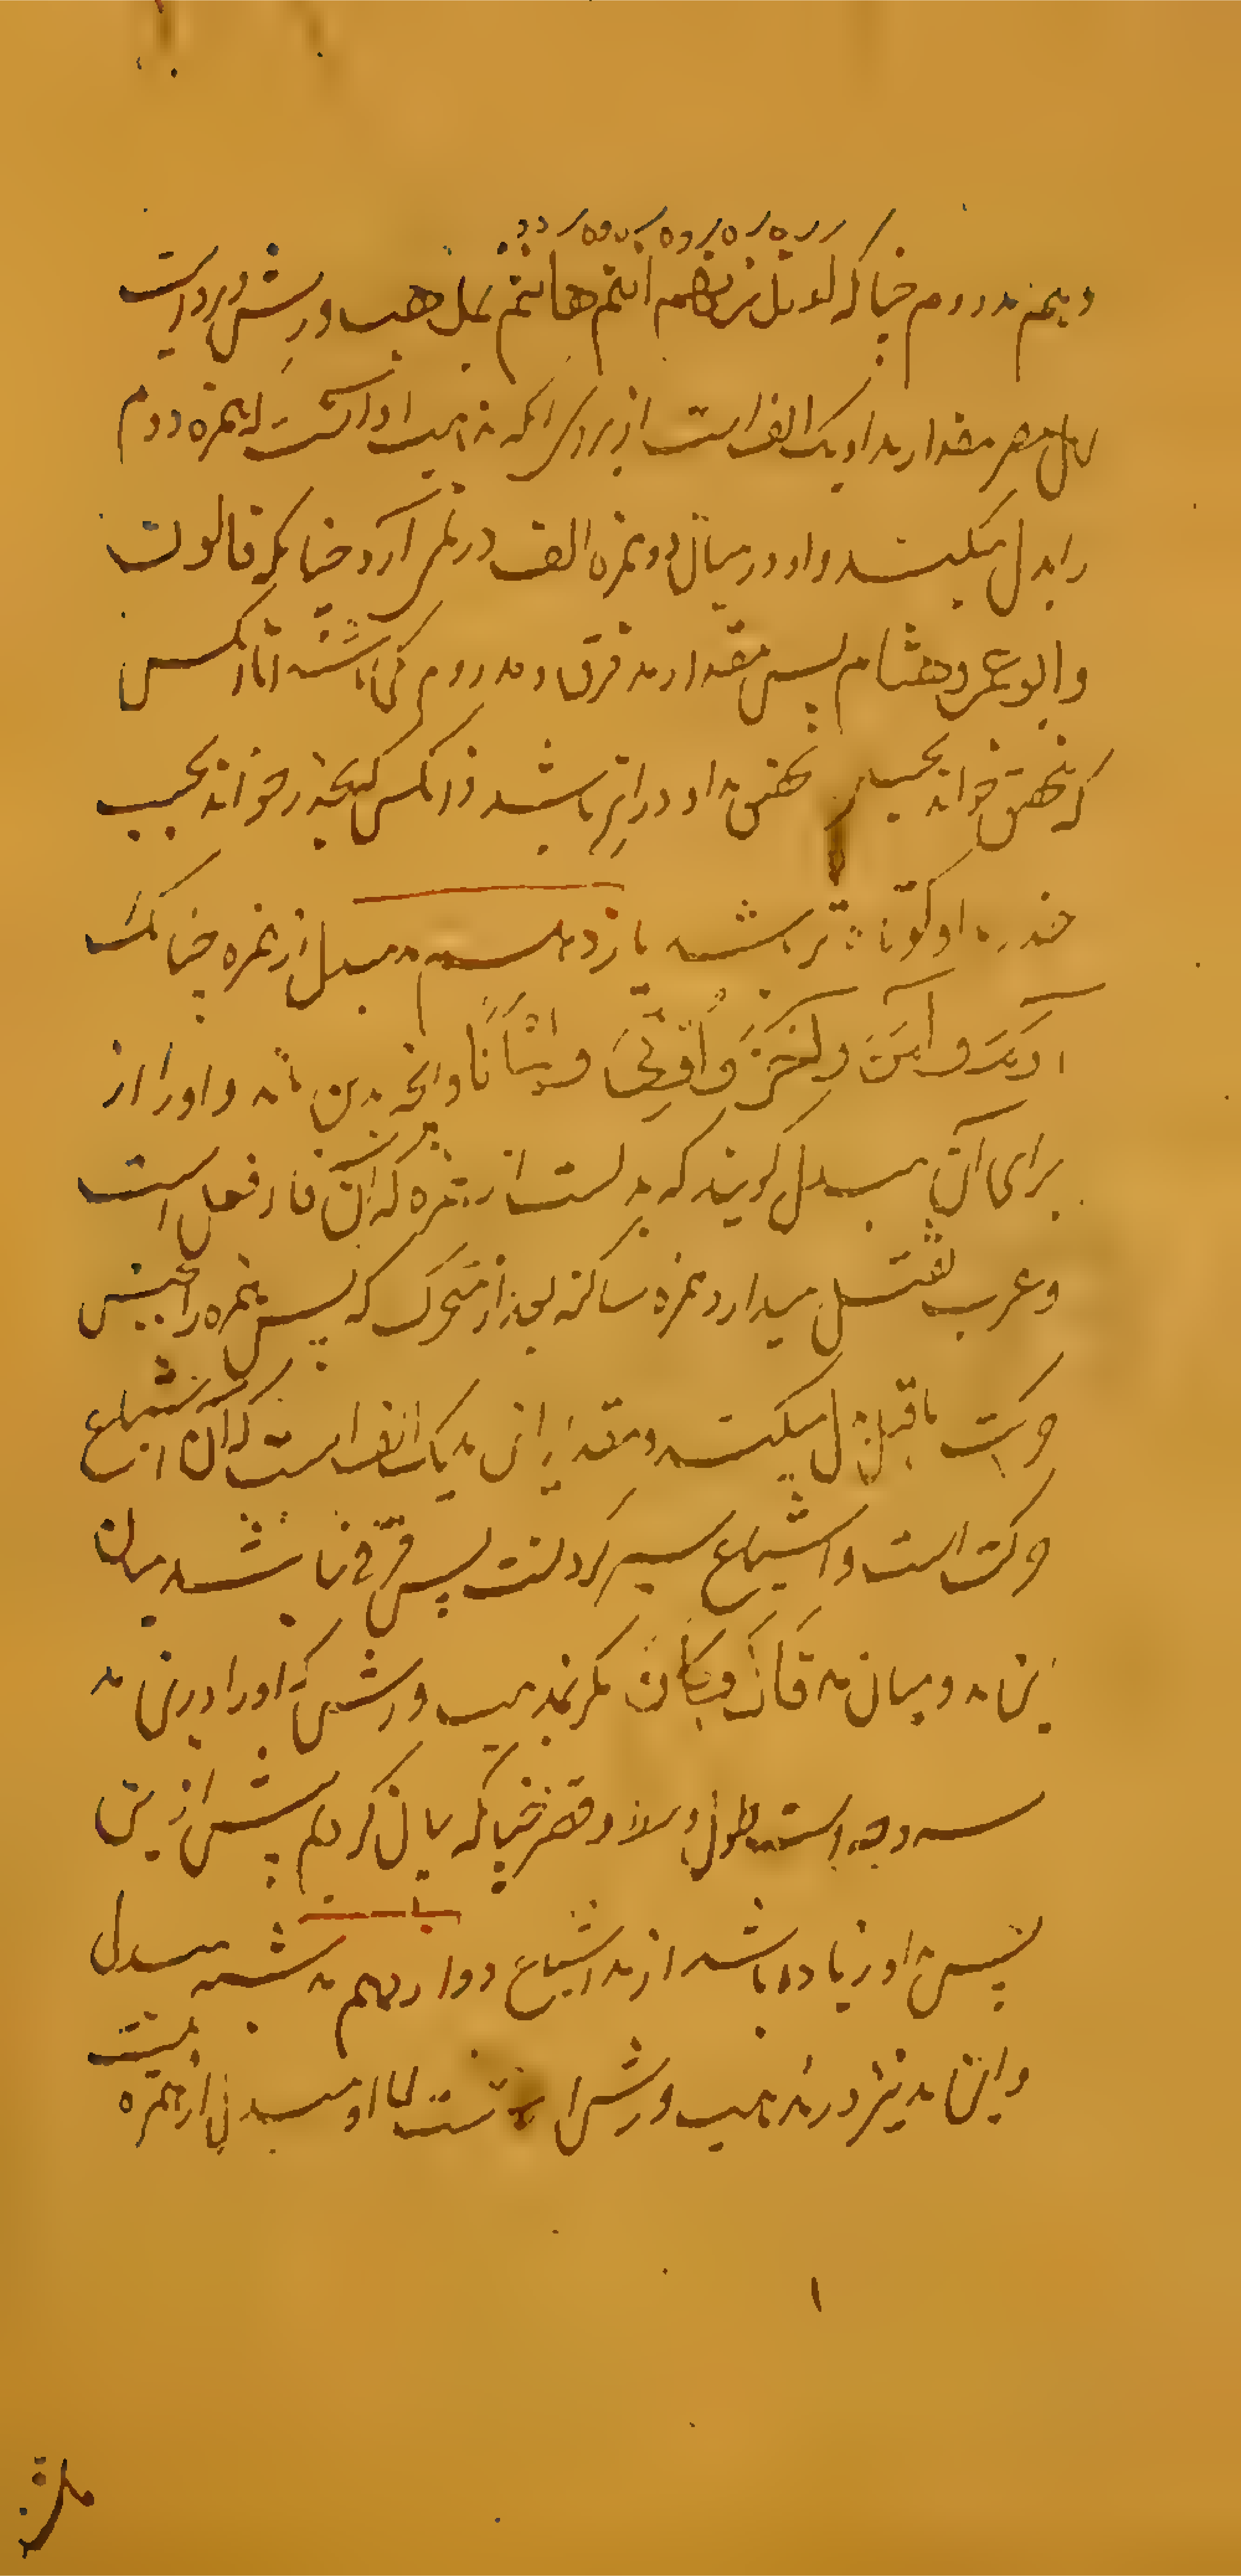 دهم مد روم چنا که ءانذرتهم ءانتم هاانتم بمذهب ورش در روایت
اهل مصر مقدار مد او یک الف است از برای آنکه مذهب او آنست که همزه دوم
را بدل میکند واو در میان دو همزه الف در نمی آرد چنا که قالون
و ابو عمرو و هشام پس مقدار مد فرق و مد روم کی باشد اما آنکس
که تحقیق خواند بحسب تحقیق مد او درازتر باشد و آنکس که بحدر خواند بحسب
حدر مد او کوتاه تر باشد یازدهم مد مبدل از همزه چنانک
آدم و آمن و آخر و اوتی و ایمانا و آنچه بدین ماند و او را از
برای آن مبدل گویند که بدلست از همزه که آن فاء فعل است
و عرب ثقیل میدارد همزه ساکنه بعد از متحرک که پس همزه را بجنس
حرکت ماقبل بدل میکنند و مقدار این مد یک الف است که آن اشباع
حرکت است و اشباع سیر کردنست پس فرقی نباشد میان
این مد و میان مد قال و کان مگر بمذهب ورش که او را درین مد
سه وجه است طول و وسط و قصر چنا که بیان کردیم پیش ازین
پس مد او زیاده باشد از مد اشباع دوازدهم مد شبه مبدل
و این مد نیز در مذهب ورش است اما او مبدل از همزه نیست